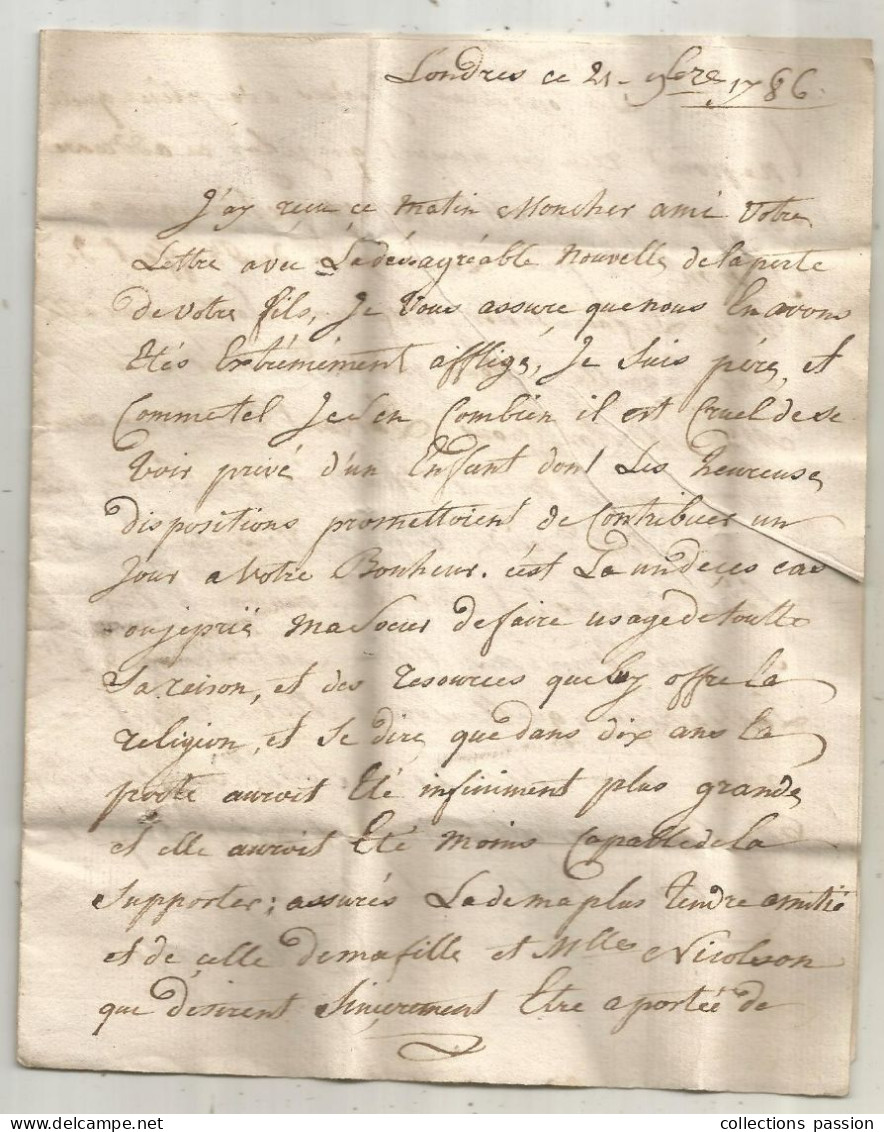 Londres ce 21 - 9bre 1786.
J'ay reçu ce matin Moncher ami Votre
Lettre avec Ladésagréable Nouvelle delaperte
devotre fils, Je Vous assure quenous Enavons
Etés Extrémément affligé, Je suis pére, et
Commetel JeSen Combien il est Crueldese
Voir privé d'un Enfant dont Les heureuse
dispositions promettoient de Contribuer un
Jour a Votre Bonheur. c'est La undeçes cas
oujeprië MaSoeur defaire usagedetoutte
Sareison, et des resources queluy offre la
religion, et se dire quedans dix ans la
perte auroit Eté infiniment plus grande
et elle auroit Eté moins Capabledela
Supporter; assurés Ladema plus tendre amitié
et de çelle demafille et Mlles Nicolson
que désirent Sinçerement Etre aportée de
collections passion